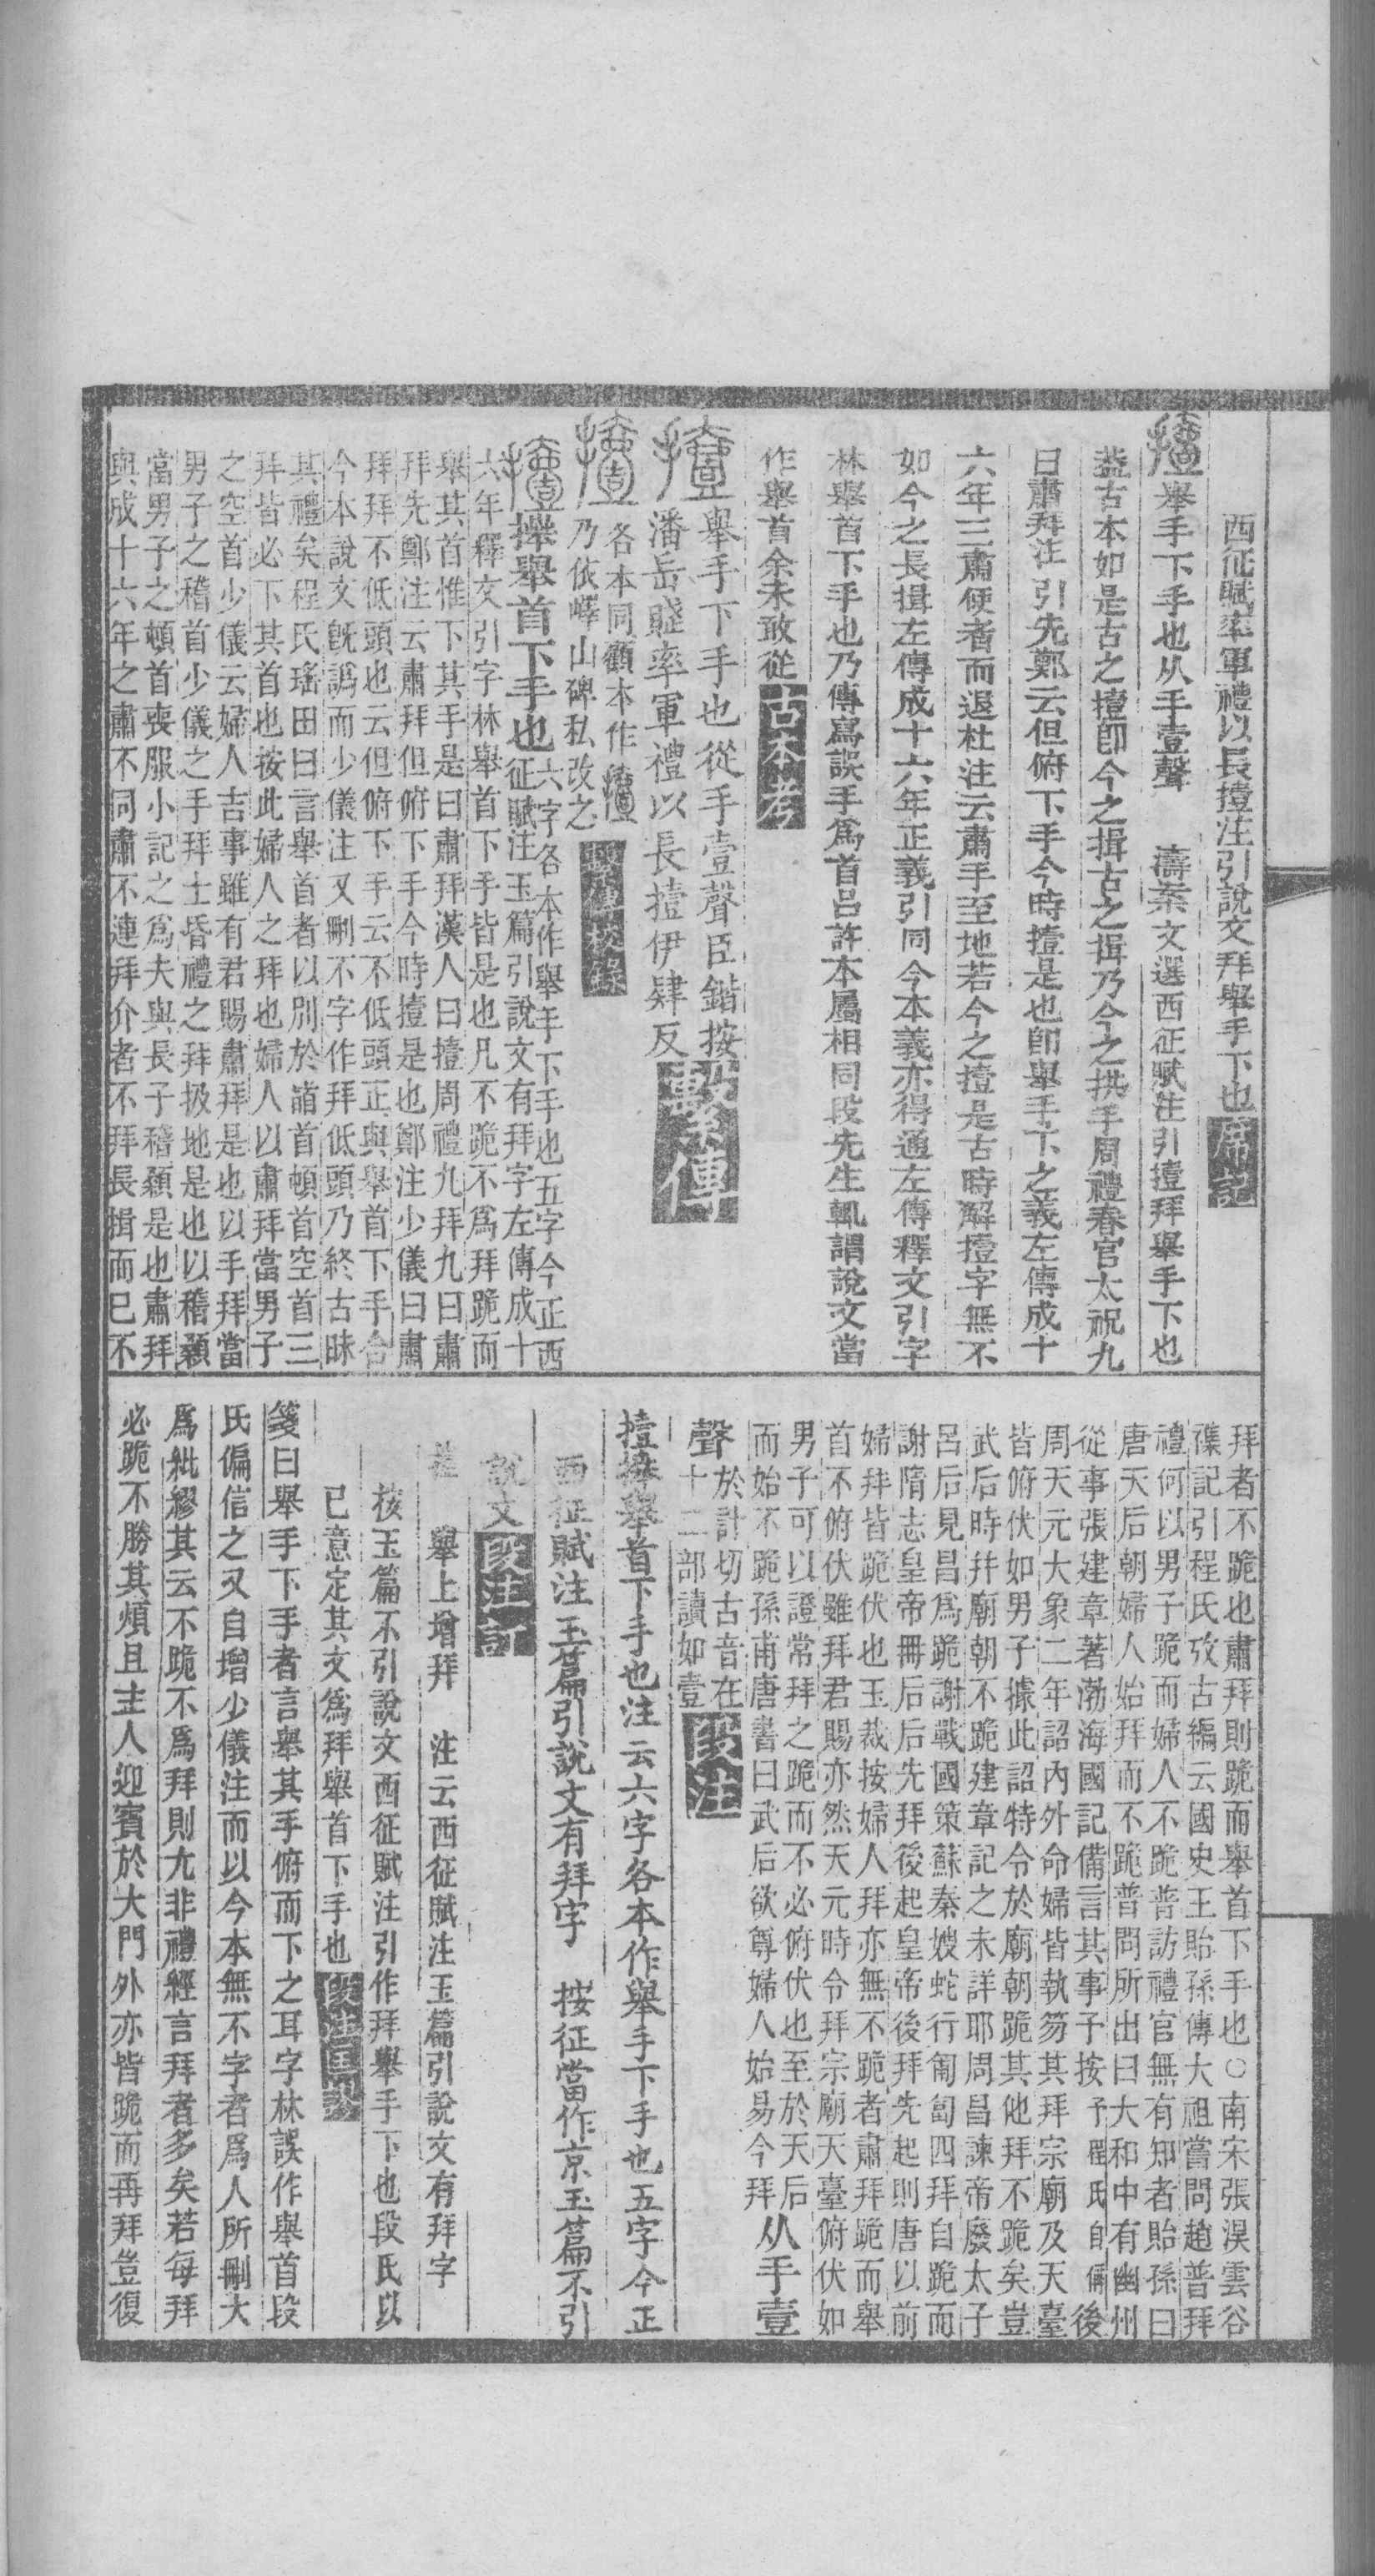 西征賦率軍禮以長撎注引說文拜舉手下也席記
舉手下手也从手壹聲　濤案文選西征賦注引撎拜舉手下也
葢古本如是古之撎卽今之揖古之揖乃今之拱手周禮春官太祝九
曰肅拜注引先鄭云但俯下手今時撎是也卽舉手下之義左傳成十
六年三肅使者而退杜注云肅手至地若今之撎是古時解撎字無不
如今之長揖左傳成十六年正義引同今本義亦得通左傳釋文引字
林舉首下手也乃傳寫誤手爲首呂許本屬相同段先生輒謂說文當
作舉首余未敢從古本考
舉手下手也從手壹聲臣鍇按
潘岳賤率軍禮以長撎伊肄反繫傳
各本同顧本作
乃依嶧山碑私改之
撎舉首下手也六字各本作舉手下手也五字今正西
征賦注玉篇引說文有拜字左傳成十
六年釋文引字林舉首下手皆是也凡不跪不爲拜跪而
舉其首惟下其手是曰肅拜漢人曰撎周禮九拜九曰肅
拜先鄭注云肅拜但俯下手今時撎是也鄭注少儀曰肅
拜拜不低頭也云但俯下手云不低頭正與舉首下手合
今本說文旣譌而少儀注又刪不字作拜低頭乃終古昧
其禮矣程氏瑤田曰言舉首者以別於𩒨首頓首空首三
拜皆必下其首也按此婦人之拜也婦人以肅拜當男子
之空首少儀云婦人吉事雖有君賜肅拜是也以手拜當
男子之稽首少儀之手拜士昏禮之拜扱地是也以稽顙
當男子之頓首喪服小記之爲夫與長子稽顙是也肅拜
與成十六年之肅不同肅不連拜介者不拜長揖而已不
拜者不跪也肅拜則跪而舉首下手也○南宋張淏雲谷
襍記引程氏攷古編云國史王貽孫傳大祖嘗問趙普拜
禮何以男子跪而婦人不跪普訪禮官無有知者貽孫曰
唐天后朝婦人始拜而不跪普問所出曰大和中有幽州
從事張建章著渤海國記備言其事予按予程氏自偁後
周天元大象二年詔內外命婦皆執笏其拜宗廟及天臺
皆俯伏如男子據此詔特令於廟朝跪其他拜不跪矣豈
武后時幷廟朝不跪建章記之未詳耶周昌諫帝廢太子
呂后見昌爲跪謝戰國策蘇秦嫂蛇行匍匐四拜自跪而
謝隋志皇帝冊后后先拜後起皇帝後拜先起則唐以前
婦拜皆跪伏也玉裁按婦人拜亦無不跪者肅拜跪而舉
首不俯伏雖拜君賜亦然天元時令拜宗廟天臺俯伏如
男子可以證常拜之跪而不必俯伏也至於天后
而始不跪孫甫唐書曰武后欲尊婦人始易今拜从手壹
聲於計切古音在
十二部讀如壹段注
撎舉舉首下手也注云六字各本作舉手下手也五字今正
西征賦注玉篇引說文有拜字　按征當作京玉篇不引
說文段注訂
舉上增拜　注云西征賦注玉篇引說文有拜字
按玉篇不引說文西征賦注引作拜舉手下也段氏以
已意定其文爲拜舉首下手也段注匡謬
箋曰舉手下手者言舉其手俯而下之耳字林誤作舉首段
氏偏信之又自增少儀注而以今本無不字者爲人所刪大
爲紕繆其云不跪不爲拜則尢非禮經言拜者多矣若每拜
必跪不勝其煩且主人迎賓於大門外亦皆跪而再拜豈復